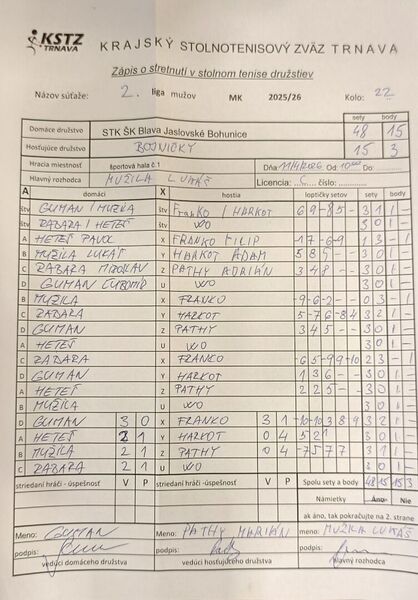 KSTZ
TRNAVA
KRAJSKÝ STOLNOTENISOVÝ ZVÄZ TRNAVA
Zápis o stretnutí v stolnom tenise družstiev
Názov súťaže: 2. liga mužov MK 2025/26 Kolo: 22
sety body
Domáce družstvo STK ŠK Blava Jaslovské Bohunice 48 15
Hosťujúce družstvo BOJNIČKY 15 3
Hracia miestnosť športová hala č.1 Dňa Od Do
Hlavný rozhodca MUŽILA LUKÁŠ Licencia: C číslo:
A domáci X hostia loptičky setov sety body
štv GUMAN / MUZILA štv FRANKO / HARKOT 6 9 -8 5 - 3 1 1 -
štv RABARA / HETEŠ štv WO 3 0 1 -
A HETEŠ PAVOL X FRANKO FILIP 1 3 - 1
B MUŽILA LUKÁŠ Y HARKOT ADAM 5 8 5 - - 3 0 1 -
C RABARA MIROSLAV Z PATHY ADRIÁN 3 4 8 - - 3 0 1 -
D GUMAN ĽUBOMÍR U WO 3 0 1 -
B MUŽILA X FRANKO -9 -6 -2 - - 0 3 - 1
C RABARA Y HARKOT 3 2 1 -
D GUMAN Z PATHY 3 4 5 - - 3 0 1 -
A HETEŠ U WO 3 0 1 -
C RABARA X FRANKO 2 3 - 1
D GUMAN Y HARKOT 1 3 6 - - 3 0 1 -
A HETEŠ Z PATHY 2 2 5 - - 3 0 1 -
B MUŽILA U WO 3 0 1 -
D GUMAN 3 0 X FRANKO 3 1 -10 -10 3 8 9 3 2 1 -
A HETEŠ 2 1 Y HARKOT 0 4 5 2 1 3 0 1 -
B MUŽILA 2 1 Z PATHY 0 4 -7 5 7 7 3 1 1 -
C RABARA 2 1 U WO 3 0 1 -
striedaní hráči - úspešnosť V P striedaní hráči - úspešnosť V P Spolu sety a body 48 15 15 3
Námietky Áno Nie
ak áno, tak pokračujte na 2. strane
Meno: GUMAN meno: PATHY MARIÁN meno: MUŽILA LUKÁŠ
podpis: podpis: podpis:
vedúci domáceho družstva vedúci hosťujúceho družstva hlavný rozhodca